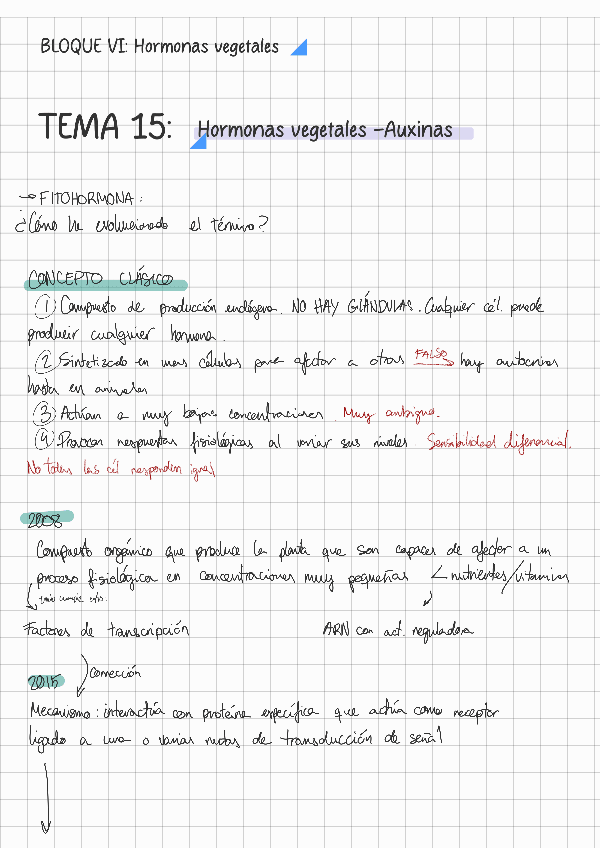 BLOQUE VI: Hormonas vegetales
TEMA 15: Hormonas vegetales -Auxinas
→ FITOHORMONA:
¿Cómo ha evolucionado el término?
CONCEPTO CLÁSICO
① Compuesto de producción endógena. NO HAY GLÁNDULAS. Cualquier cél. puede
producir cualquier hormona.
② Sintetizado en unas células para afectar a otras FALSO → hay autocrinas
hasta en animales
③ Actúan a muy bajas concentraciones. Muy ambiguo.
④ Provocan respuestas fisiológicas al variar sus niveles. Sensibilidad diferencial.
No todas las cél responden igual
2008
Compuesto orgánico que produce la planta que son capaces de afectar a un
proceso fisiológico en concentraciones muy pequeñas < nutrientes/vitaminas
Factores de transcripción ARN con act. reguladora
2015 Corrección
Mecanismo: interactúa con proteína específica que actúa como receptor
ligado a una o varias rutas de transducción de señal